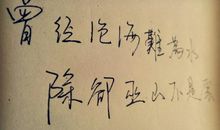 曾经沧海難為水
除却巫山不是云